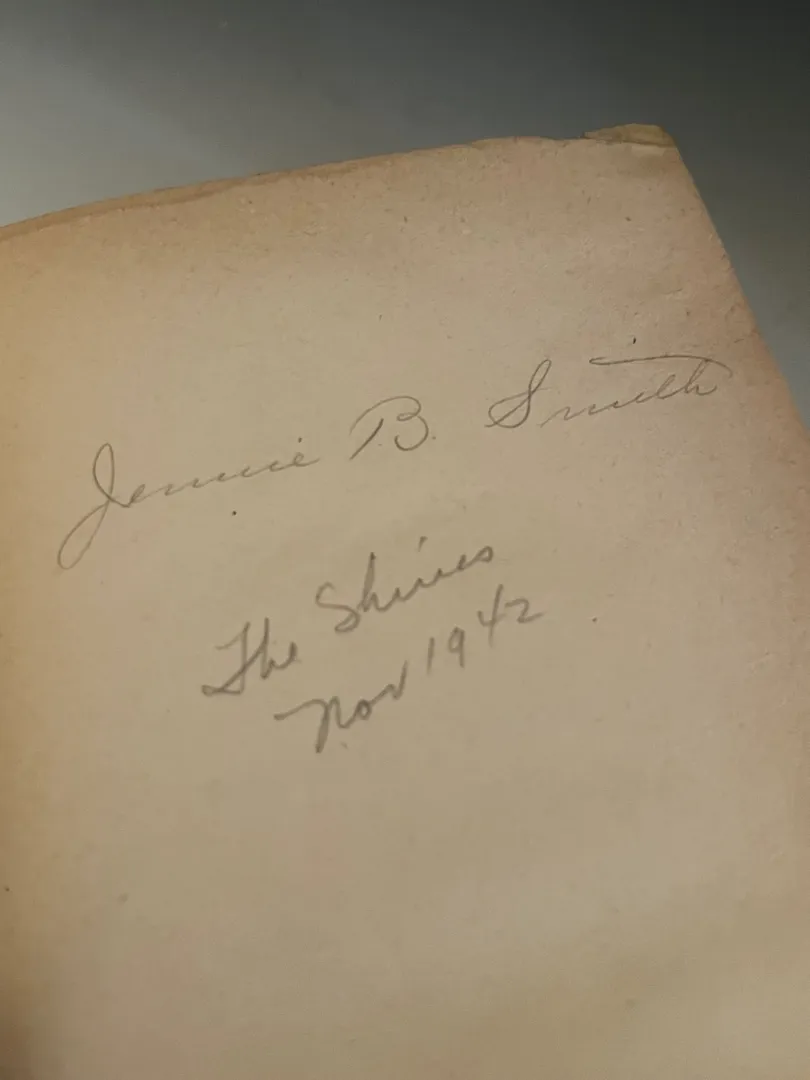 Jennie B. Smith
The Shines
Nov 1942